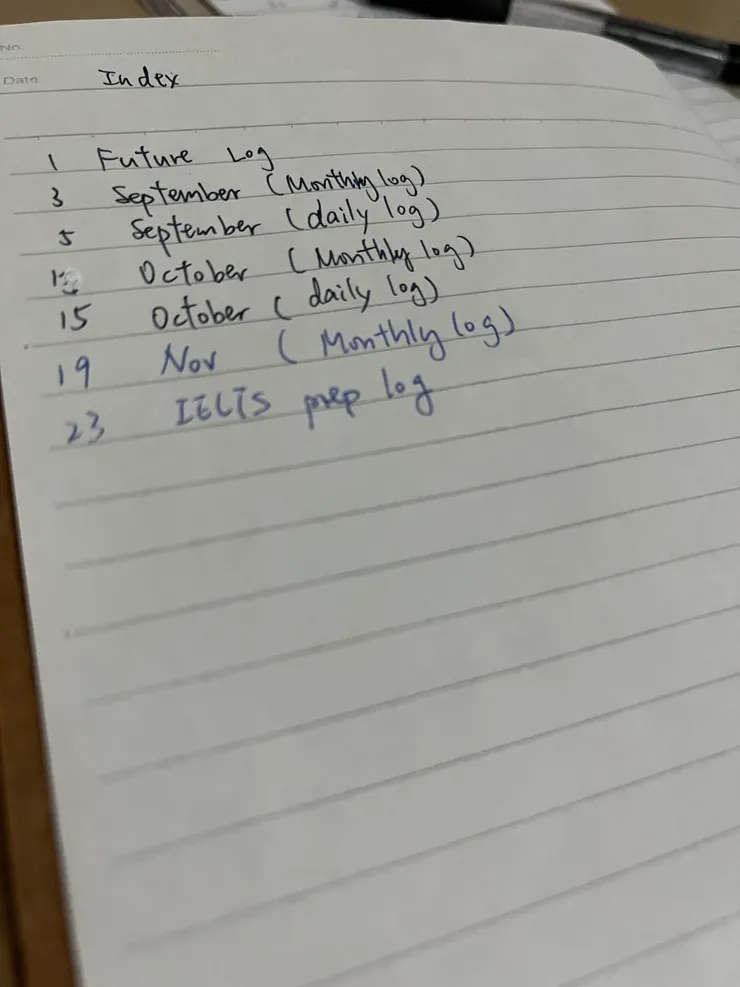 No.
Date
Index
1 Future Log
3 September (Monthly log)
5 September (daily log)
October (Monthly log)
15 October (daily log)
19 Nov (Monthly log)
23 IELTS prep log